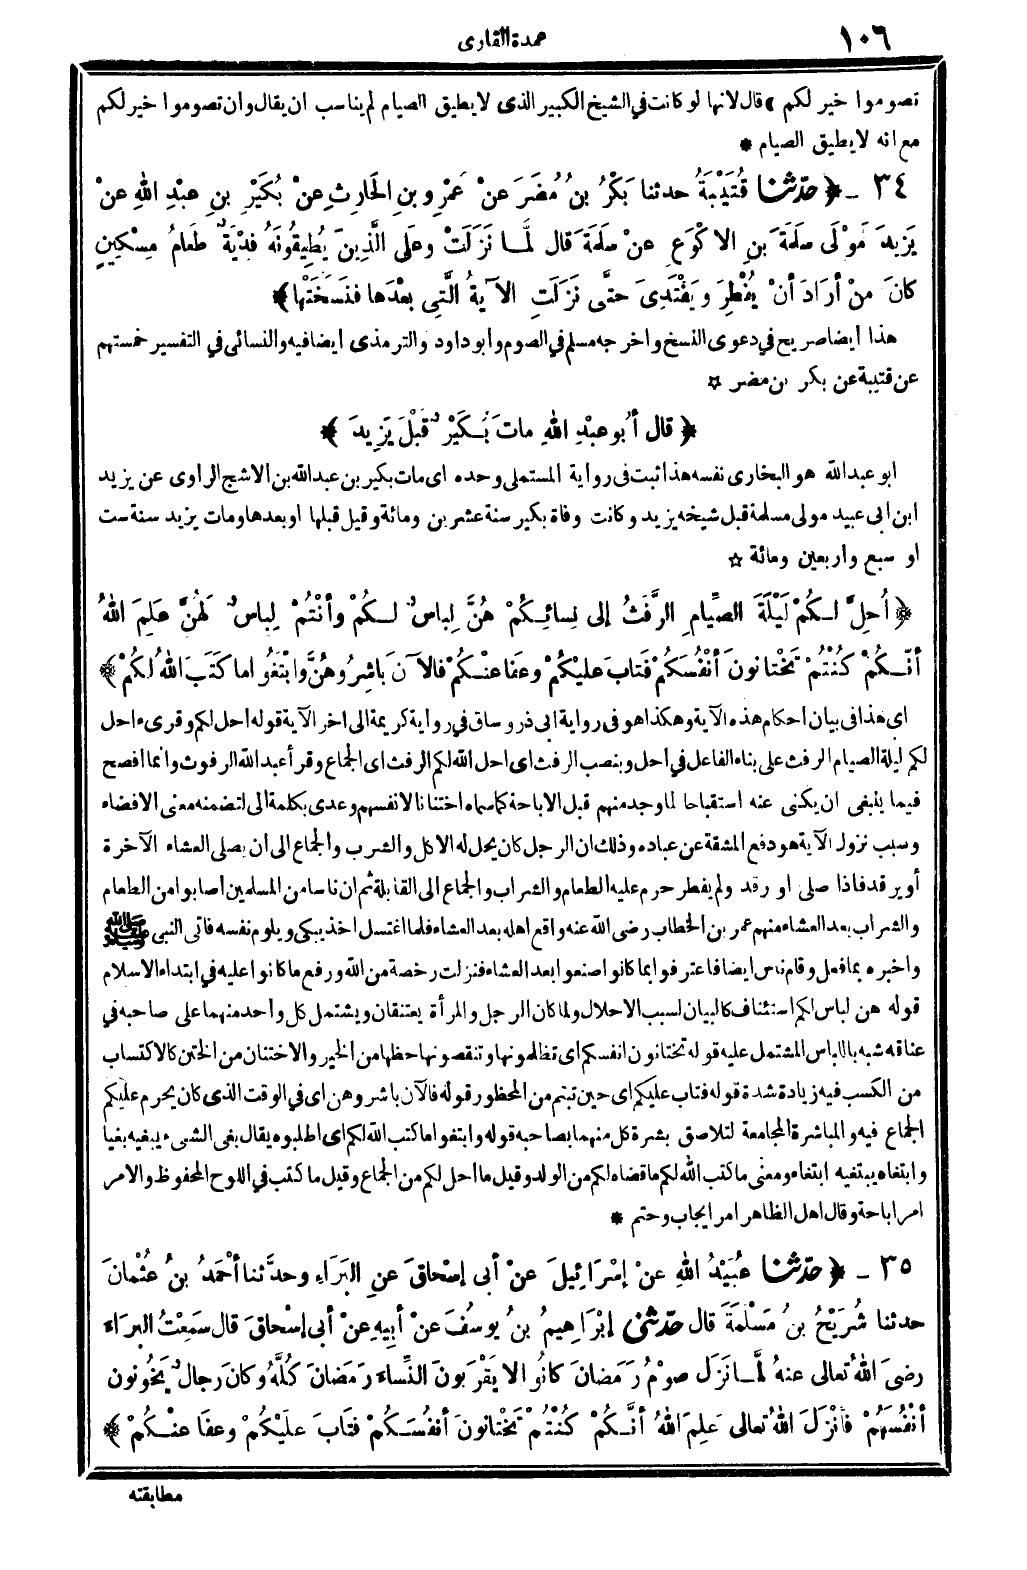 ١٠٦
عمدة القارى
تصوموا خير لكم ﴾ قال لانها لو كانت في الشيخ الكبير الذى لا يطيق الصيام لم يناسب ان يقال وان تصوموا خير لكم
مع انه لا يطيق الصيام *
٣٤ - ﴿ حدّثنا قُتَيْبَةُ حدثنا بَكْرُ بنُ مُضَرَ عنْ عَمْرِو بنِ الحَارِثِ عنْ بُكَيْرِ بنِ عبْدِ اللهِ عنْ
يَزِيدَ مَوْلَى سلَمَةَ بنِ الاكْوَعِ عنْ سلَمَةَ قال لَمَّا نَزَلَتْ وعلَى الَّذِينَ يُطِيقُونَهُ فِدْيَةٌ طَعامُ مِسْكِينٍ
كانَ مَنْ أرَادَ أنْ يُفْطِرَ ويَفْتَدِىَ حتَّى نَزَلَتِ الآيةُ الَّتِى بعْدَها فنَسَخَتْها ﴾
هذا ايضا صريح في دعوى النسخ واخرجه مسلم في الصوم وابو داود والترمذى ايضا فيه والنسائى في التفسير خمستهم
عن قتيبة عن بكر بن مضر ☆
﴿ قال أبُو عبْدِ اللهِ ماتَ بُكَيْرٌ قبْلَ يَزِيدَ ﴾
ابو عبد الله هو البخارى نفسه هذا ثبت فى رواية المستملى وحده اى مات بكير بن عبد الله بن الاشج الراوى عن يزيد
ابن ابى عبيد مولى مسلمة قبل شيخه يزيد وكانت وفاة بكير سنة عشرين ومائة وقيل قبلها او بعدها ومات يزيد سنة ست
او سبع واربعين ومائة ☆
﴿ أُحِلَّ لَكُمْ لَيْلَةَ الصِّيامِ الرَّفَثُ إلى نِسائِكُمْ هُنَّ لِباسٌ لَكُمْ وأنْتُمْ لِباسٌ لَهُنَّ علِمَ اللهُ
أنَّكُمْ كُنْتُمْ تَخْتانونَ أنْفُسَكُمْ فَتَابَ علَيْكُمْ وعَفا عنْكُمْ فالآنَ باشِرُوهُنَّ وابْتَغُوا ما كَتَبَ اللهُ لكُمْ ﴾
اى هذا فى بيان احكام هذه الآية وهكذا هو فى رواية ابى ذر وساق في رواية كريمة الى اخر الآية قوله احل لكم وقرىء احل
لكم ليلة الصيام الرفث على بناء الفاعل في احل وبنصب الرفث اى احل الله لكم الرفث اى الجماع وقرأ عبد الله الرفوث وانما افصح
فيما ينبغى ان يكنى عنه استقباحا لما وجد منهم قبل الاباحة كما سماه اختنانا لانفسهم وعدى بكلمة الى لتضمنه معنى الافضاء
وسبب نزول الآية هو دفع المشقة عن عباده وذلك ان الرجل كان يحل له الاكل والشرب والجماع الى ان يصلى العشاء الآخرة
أو يرقد فاذا صلى او رقد ولم يفطر حرم عليه الطعام والشراب والجماع الى القابلة ثم ان ناسا من المسلمين اصابوا من الطعام
والشراب بعد العشاء منهم عمر بن الخطاب رضى الله عنه واقع اهله بعد العشاء فلما اغتسل اخذ يبكى ويلوم نفسه فاتى النبى ﷺ
واخبره بما فعل وقام ناس ايضا فاعترفوا بما كانوا صنعوا بعد العشاء فنزلت رخصة من الله ورفع ما كانوا عليه في ابتداء الاسلام
قوله هن لباس لكم استئناف كالبيان لسبب الاحلال ولما كان الرجل والمرأة يعتنقان ويشتمل كل واحد منهما على صاحبه في
عناقه شبه باللباس المشتمل عليه قوله تختانون انفسكم اى تظلمونها وتنقصونها حظها من الخير والاختنان من الختن كالاكتساب
من الكسب فيه زيادة شدة قوله فتاب عليكم اى حين تبتم من المحظور قوله فالآن باشروهن اى في الوقت الذى كان يحرم عليكم
الجماع فيه والمباشرة المجامعة لتلاصق بشرة كل منهما بصاحبه قوله وابتغوا ما كتب الله لكم اى اطلبوه يقال بغى الشىء يبغيه بغيا
وابتغاه يبتغيه ابتغاء ومعنى ما كتب الله لكم ما قضاه لكم من الولد وقيل ما احل لكم من الجماع وقيل ما كتب في اللوح المحفوظ والامر
امر اباحة وقال اهل الظاهر امر ايجاب وحتم *
٣٥ - ﴿ حدّثنا عُبَيْدُ اللهِ عنْ إسْرَائِيلَ عنْ أبى إسْحاقَ عنِ البَرَاءِ وحدَّثنا أحْمَدُ بنُ عُثْمانَ
حدثنا شُرَيْحُ بنُ مَسْلَمَةَ قال حدّثنى إبْرَاهِيمُ بنُ يوسُفَ عنْ أبِيهِ عنْ أبى إسْحاقَ قال سَمِعْتُ البَرَاءَ
رضىَ اللهُ تعالى عنهُ لَمَّا نَزَلَ صوْمُ رَمَضانَ كانُوا لا يَقْرَبونَ النِّساءَ رَمَضانَ كُلَّهُ وكانَ رجالٌ يَخُونون
أنْفُسَهُمْ فأنْزَلَ اللهُ تعالى عَلِمَ اللهُ أنَّكُمْ كُنْتُمْ تَخْتانونَ أنْفُسَكُمْ فتَابَ علَيْكُمْ وعفَا عنْكُمْ ﴾
مطابقته